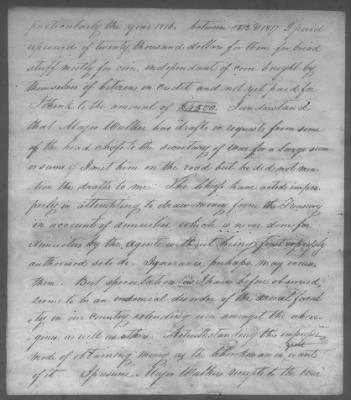 particularly the year 1816. between 1812 & 1817 I paid
upwards of twenty thousand dollars for them for bread
stuff mostly for corn, independant of corn bought by
themselves of citizens on credit and not yet paid for
I think to the amount of $4500. I understand
that Major Walker has drafts or requests from some
of the head chiefs to the secretary of war for a large sum
or sums I met him on the road but he did not men
tion the drafts to me. The chiefs have acted impro
perly in attempting to draw money from the Treasury
on account of annuities which is never done for
annuities by the agents without being first expressly
authorised so to do. Ignorance perhaps may excuse
them. But speculation as I have before observed
seems to be an endemial disorder of the
in this country extending even amongst the abori
gines as well as others. Notwithstanding this improper
mode of obtaining money as the Chickasaws in want
of it I presume Major Walkers receipts to the